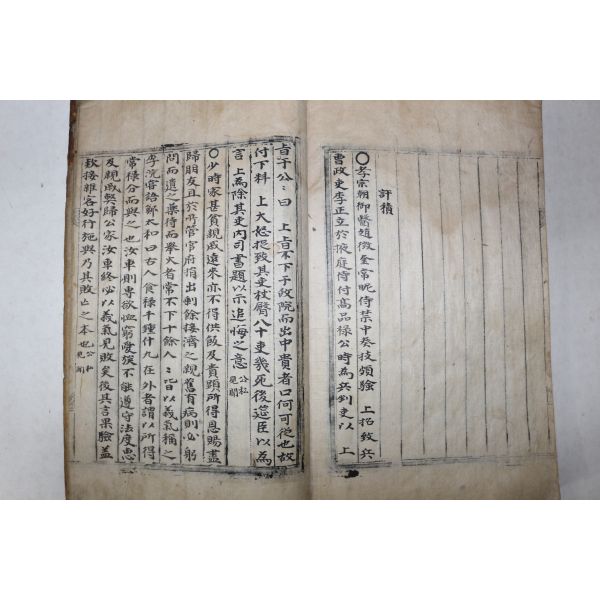 許積
○孝宗朝御醫趙徵奎常昵侍禁中奏技頗驗 上招致兵
曹政吏李正立於掖庭侍付高品祿公時為兵判吏以 上
旨于公:曰 上旨不下于政院而出中貴者口何可從也故
付下料 上大怒捉致其吏杖臀八十吏幾死後筵臣以為
言 上為除其吏內司書題以示追悔之意 公私見聞
○少時家甚貧親戚遠來亦不得供飯及貴顯所得恩賜盡
歸朋友且於所管官府捐出剩餘接濟之親舊有病則必躬
問而遺之藥待而舉火者常不下十餘人::皆以義氣稱之
李浣嘗語鄭太和曰古人食祿千鍾什九在外者謂以所得
常祿分而與之也汝車則專欲恤窮愛族不能遵守法度患
及親戚與歸公家汝車終必以義氣見敗矣後其言果驗蓋
款接雜客好行施與乃其敗亡之本也 公私見聞